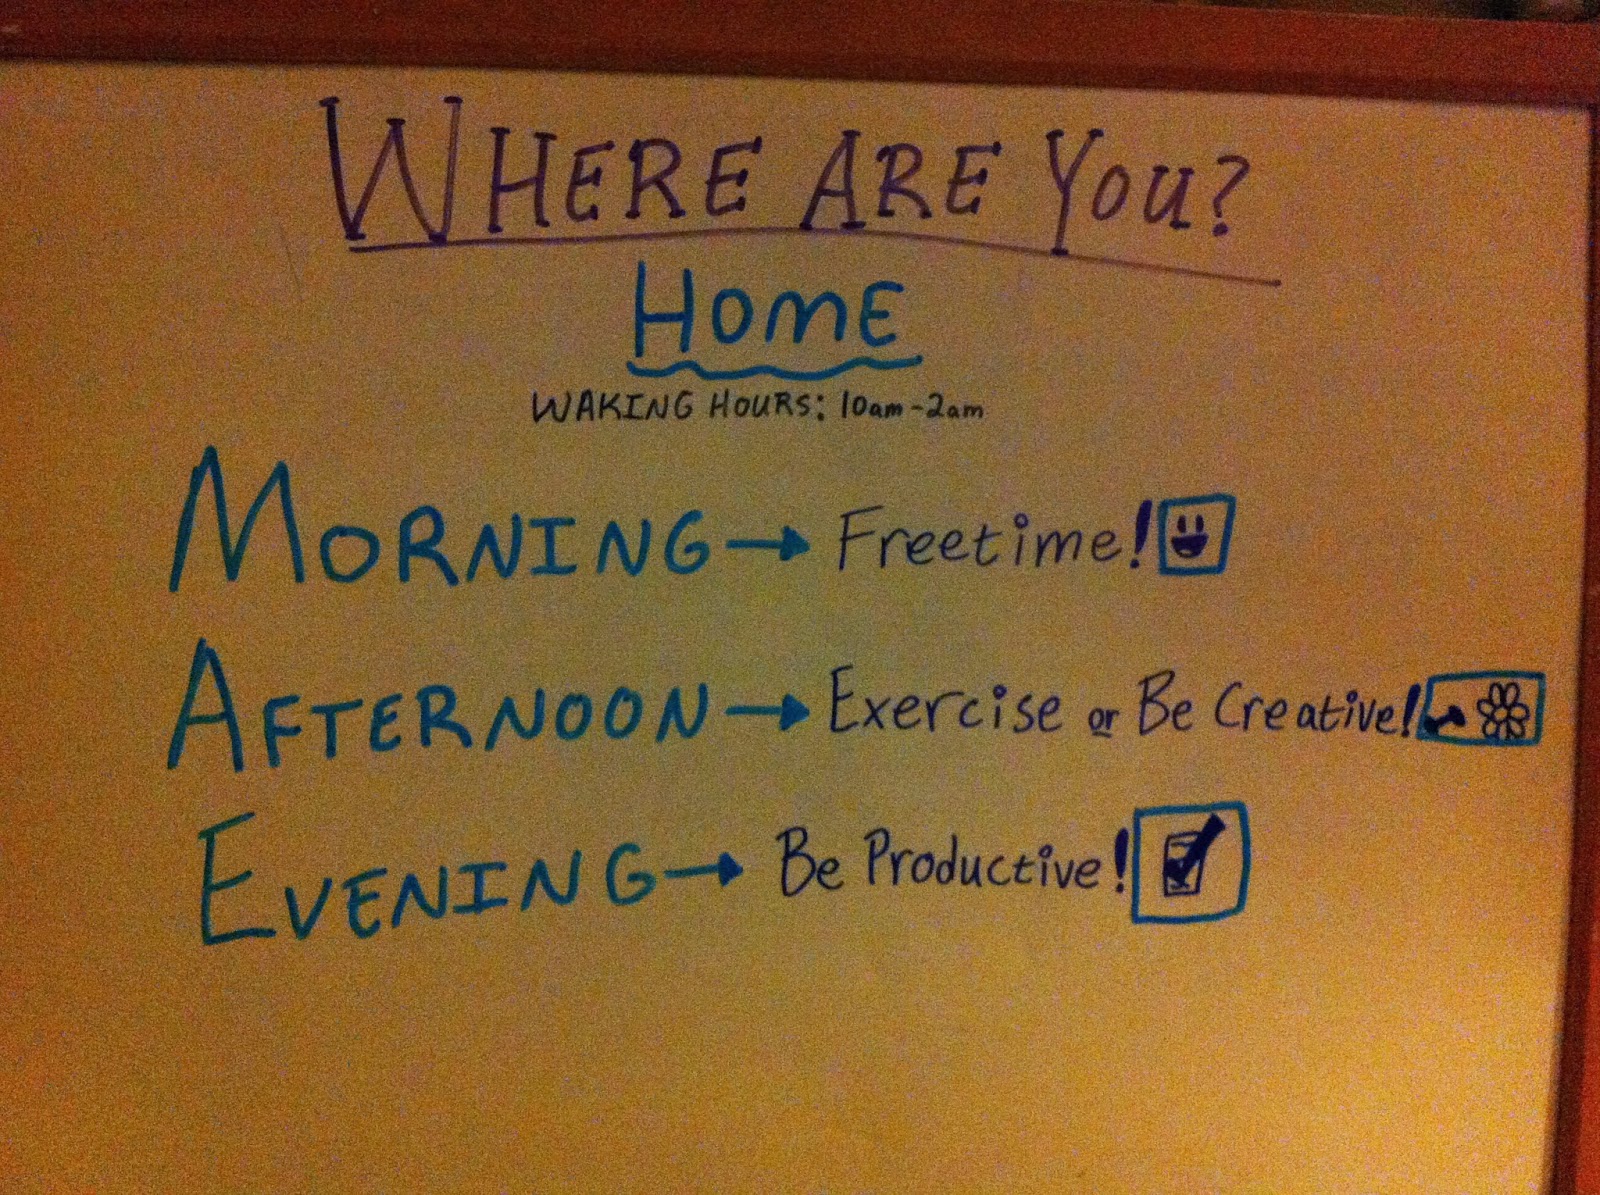 WHERE ARE YOU?
HOME
WAKING HOURS: 10am-2am
MORNING → Freetime!
AFTERNOON → Exercise or Be Creative!
EVENING → Be Productive!